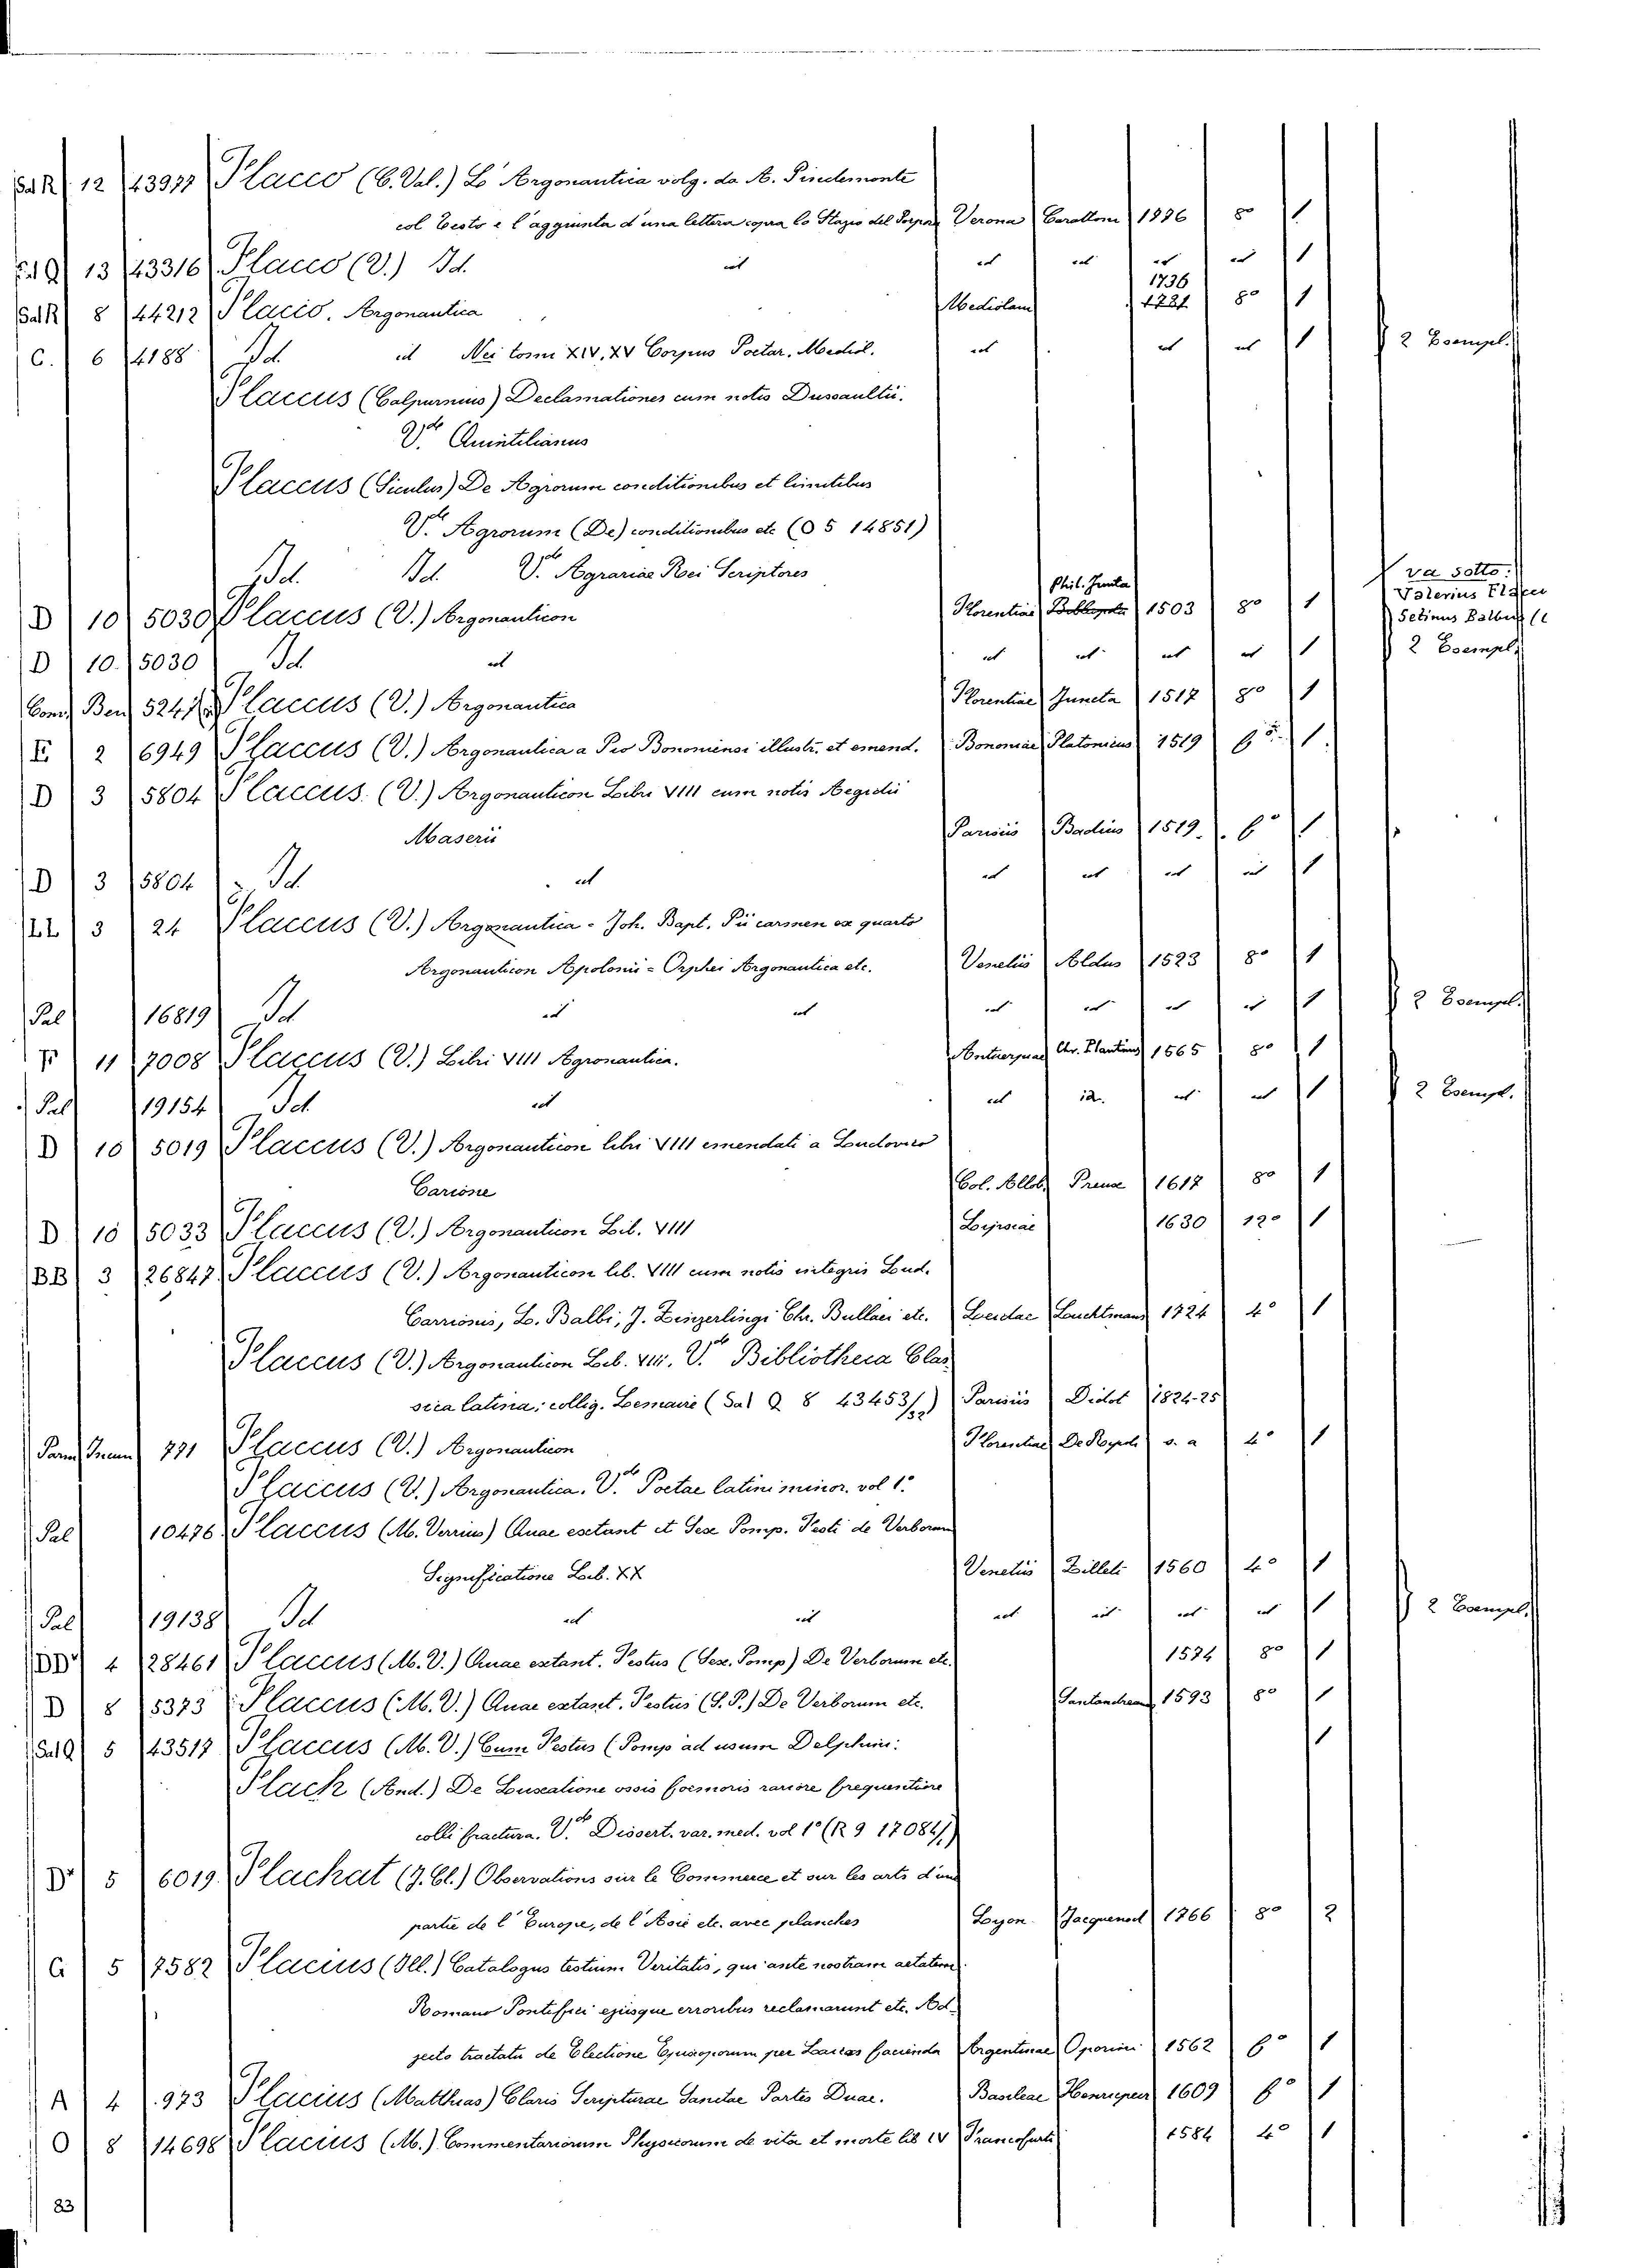 Sal R 12 43977 Flacco (C. Val.) L'Argonautica volg. da A. Pindemonte
col testo e l'aggiunta d'una lettera sopra lo Stazio del Porpora Verona Carattoni 1776 8° 1
Sal Q 13 43316 Flacco (V.) Id. id id id id id 1
Sal R 8 44212 Flacio. Argonautica Mediolani 1736 8° 1
C. 6 4188 Id. id Nei tomi XIV, XV Corpus Poetar. Mediol. id id id 1 2 Esempl.
Flaccus (Calpurnius) Declamationes cum notis Dussaultii.
V.de Quintilianus
Flaccus (Siculus) De Agrorum conditionibus et limitibus
V.de Agrorum (De) conditionibus etc (O 5 14851)
Id. Id. V.de Agrariae Rei Scriptores
D 10 5030 Flaccus (V.) Argonauticon Florentiae Phil. Junta 1503 8° 1 va sotto: Valerius Flaccus Setinus Balbus
D 10. 5030 Id. id id id id id 1 2 Esempl.
Com. Ben 5247 Flaccus (V.) Argonautica Florentiae Juncta 1517 8° 1
E 2 6949 Flaccus (V.) Argonautica a Pio Bononiensi illustr. et emend. Bononiae Platonicus 1519 6° 1.
D 3 5804 Flaccus. (V.) Argonauticon Libri VIII cum notis Aegidii
Maserii Parisiis Badius 1519. 6° 1
D 3 5804 Id id id id id id 1
LL 3 24 Flaccus (V.) Argonautica - Joh. Bapt. Pii carmen ex quarto
Argonauticon Apolonii - Orphei Argonautica etc. Venetiis Aldus 1523 8° 1
Pal 16819 Id id id id id id id 1 2 Esempl.
F 11 7008 Flaccus (V.) Libri VIII Agronautica. Antuerpiae Chr. Plantinus 1565 8° 1
Pal 19154 Id id id id. id id 1 2 Esempl.
D 10 5019 Flaccus (V.) Argonauticon libri VIII emendati a Ludovico
Carione Col. Allob. Preux 1617 8° 1
D 10 5033 Flaccus (V.) Argonauticon Lib. VIII Lipsiae 1630 12° 1
BB 3 26847 Flaccus (V.) Argonauticon lib. VIII cum notis integris Lud.
Carrionis, L. Balbi, J. Zinzerlingi Chr. Bullaei etc. Leidae Luchtmans 1724 4° 1
Flaccus (V.) Argonauticon Lib. VIII. V.de Bibliotheca Clas
sica latina; collig. Lemaire (Sal Q 8 43453/32) Parisiis Didot 1824-25
Parm Incun 771 Flaccus (V.) Argonauticon Florentiae De Ropolis s. a 4° 1
Flaccus (V.) Argonautica. V.de Poetae latini minor. vol 1°
Pal 10476 Flaccus (M. Verrius) Quae extant et Sex Pomp. Festi de Verborum
Significatione Lib. XX Venetiis Zilleti 1560 4° 1
Pal 19138 Id id id id id id id 1 2 Esempl.
DD 4 28461 Flaccus (M. V.) Quae extant. Festus (Sex. Pomp) De Verborum etc. 1574 8° 1
D 8 5373 Flaccus (M. V.) Quae extant. Festus (S. P.) De Verborum etc. Santandreana 1593 8° 1
Sal Q 5 43517 Flaccus (M. V.) Cum Festus (Pomp ad usum Delphini. 1
Flach (And.) De Luxatione ossis foemoris rariore frequentiore
colli fractura. V.de Dissert. var. med. vol 1° (R 9 17084/1)
D' 5 6019 Flachat (J. Cl.) Observations sur le Commerce et sur les arts d'une
partie de l'Europe, de l'Asie etc. avec planches Lyon. Jacquenod 1766 8° 2
G 5 7582 Flacius (Ill.) Catalogus testium Veritatis, qui ante nostram aetatem
Romano Pontifici ejusque erroribus reclamarunt etc. Ad-
jecto tractatu de Electione Episcoporum per Laicos facienda Argentinae Oporini 1562 6° 1
A 4 973 Flacius (Matthias) Claris Scripturae Sanctae Partes Duae. Basileae Henricpetr 1609 6° 1
O 8 14698 Flacius (M.) Commentariorum Physicorum de vita et morte lib IV Francofurti 1584 4° 1
83